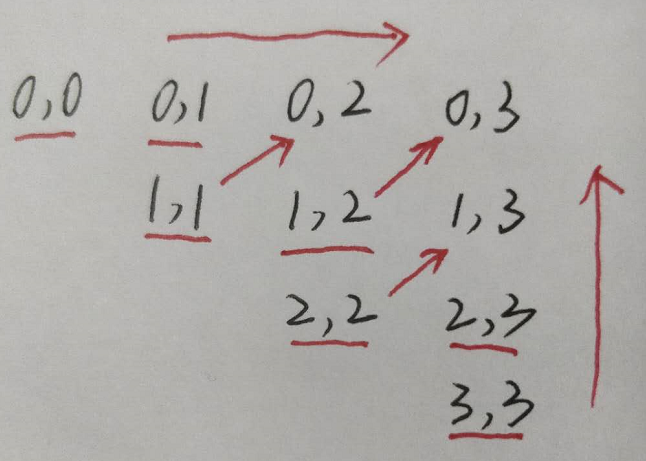 0,0 0,1 0,2 0,3
1,1 1,2 1,3
2,2 2,3
3,3